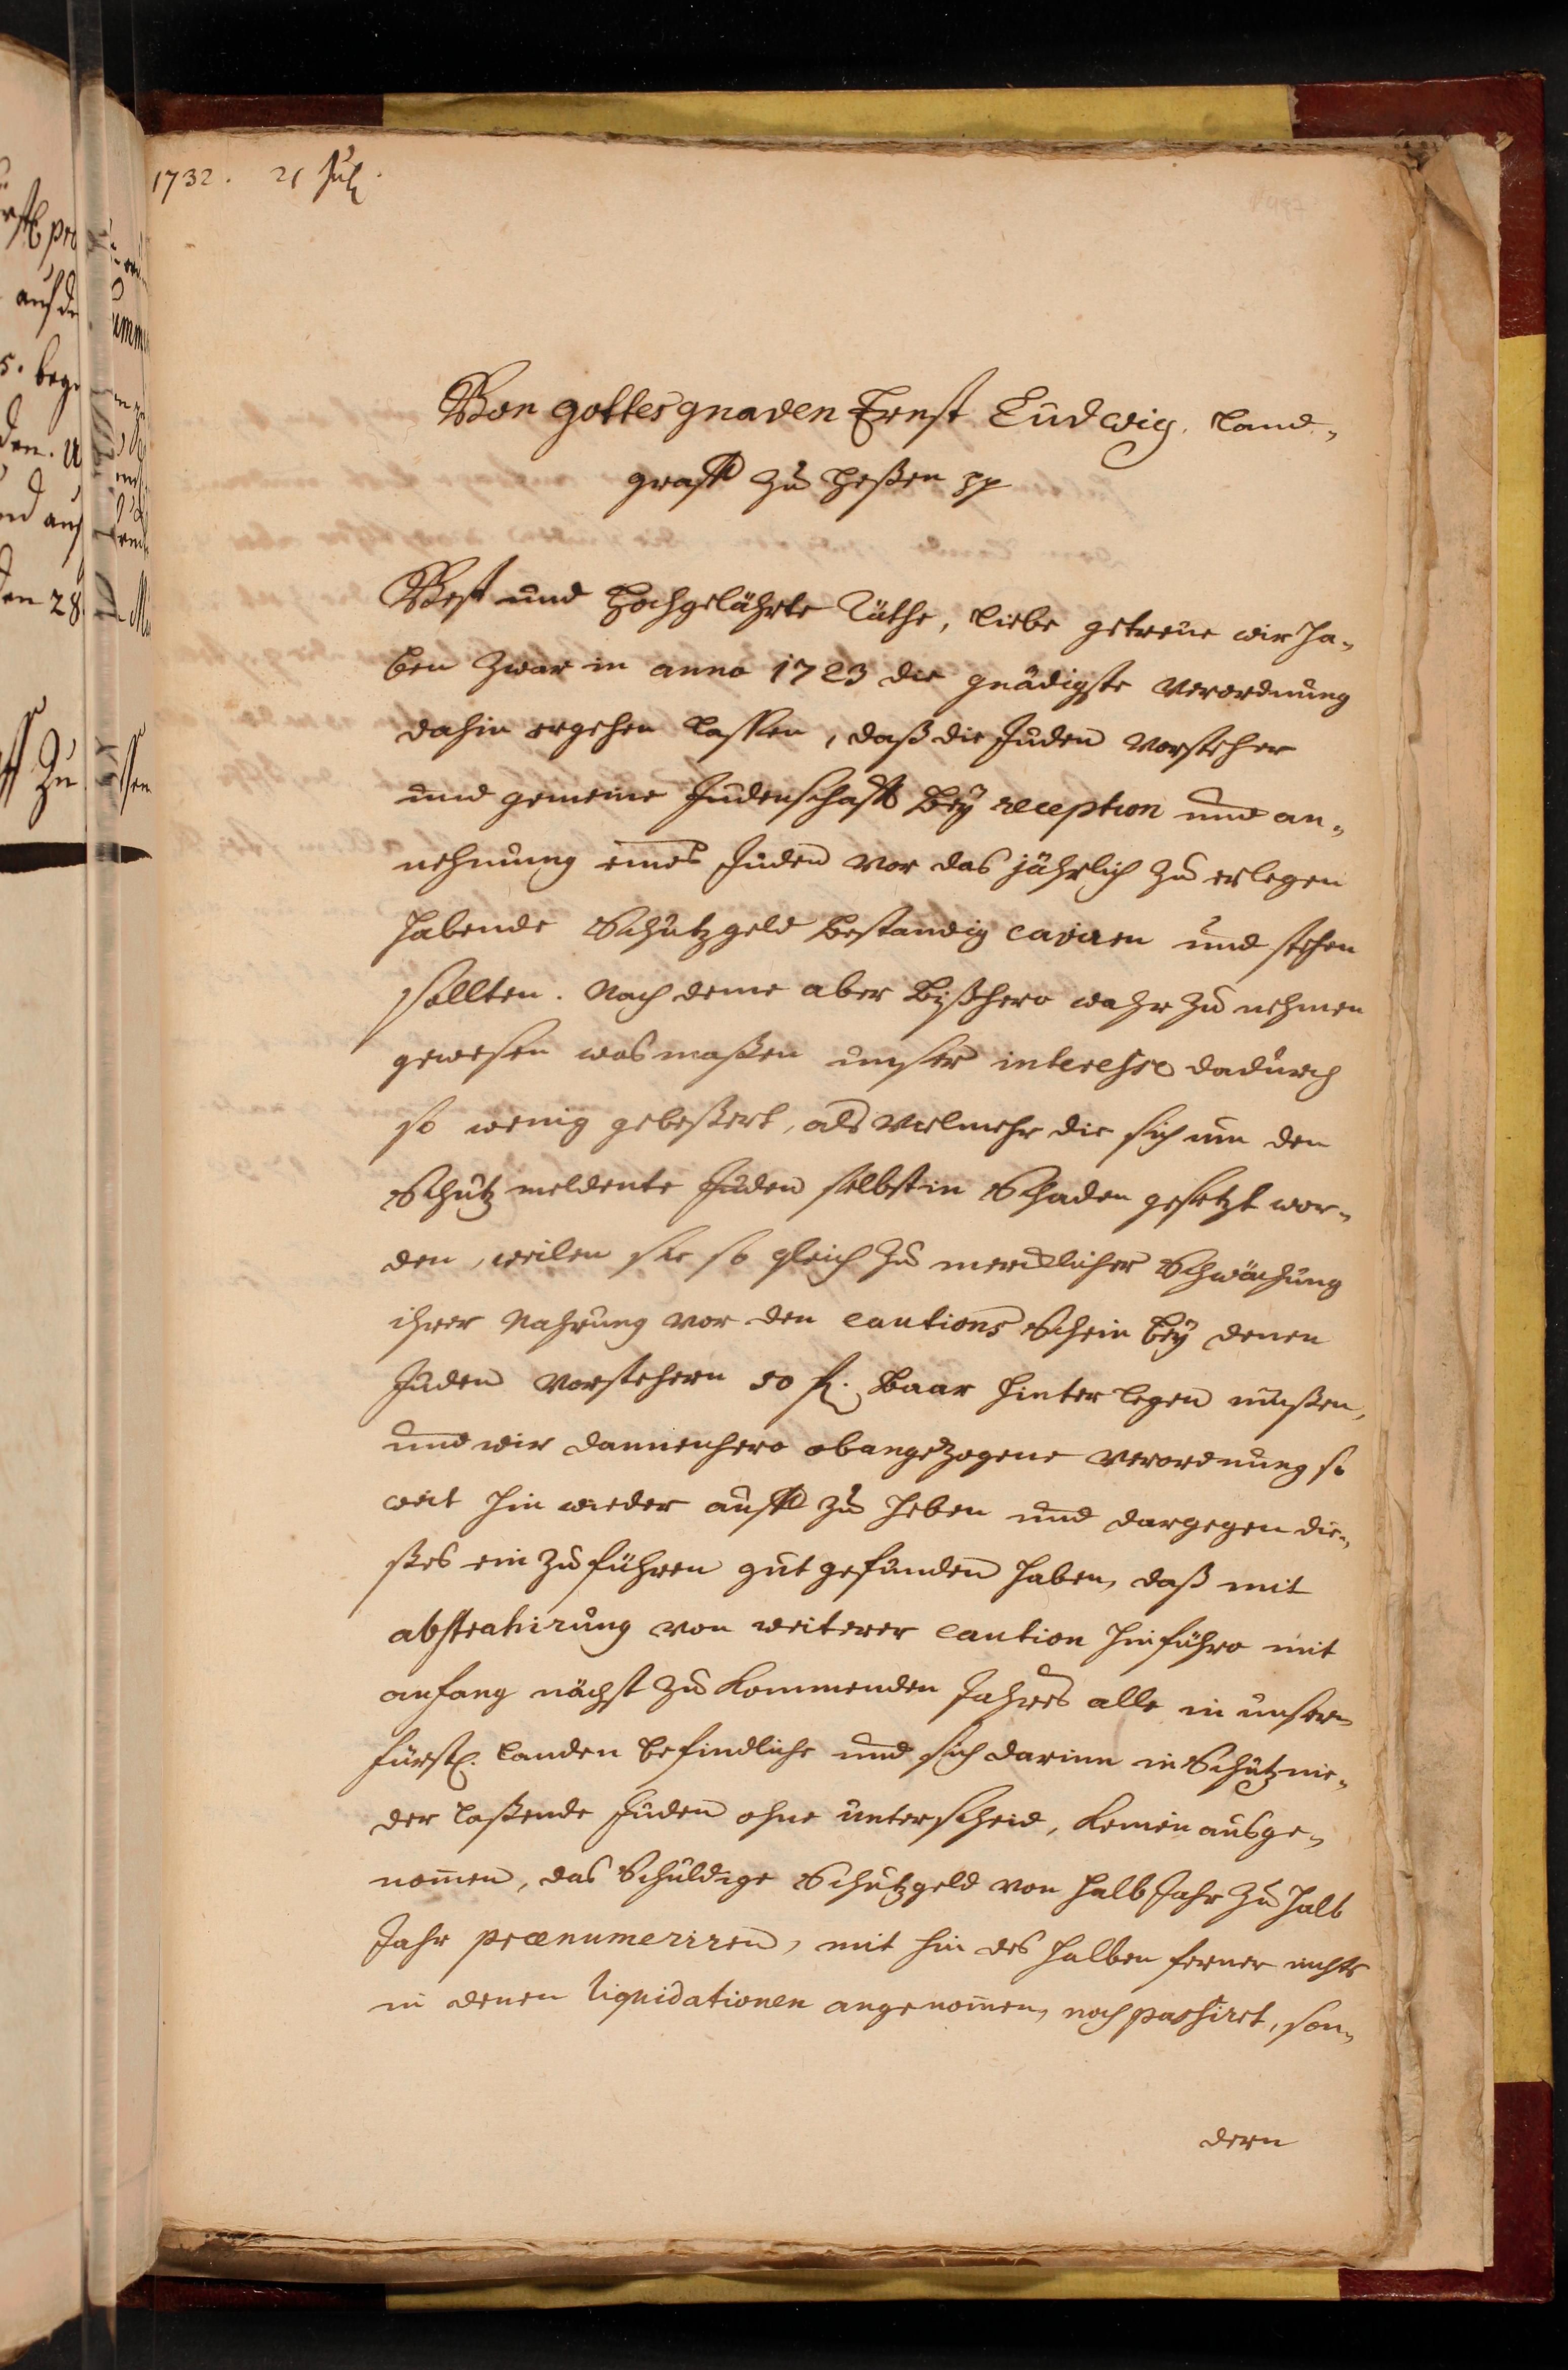 1732. 21 July.
Von gottes gnaden Ernst Ludwig, Land-
graff zu Heßen pp
Vest und Hochgelährte Räthe, liebe getreue wir ha-
ben zwar in anno 1723 die gnädigste Verordnung
dahin ergehen lassen, daß die Juden Vorsteher
und gemeine Judenschafft bey reception und an-
nehmung eines Juden vor das jährlich zu erlegen
habende Schutzgeld bestandig caviren und stehen
sollten. Nach deme aber bißhero wahr zu nehmen
gewesen was maßen unser interesse dadurch
so wenig gebeßert, als vielmehr die sich um den
Schutz meldente Juden selbst in Schaden gesetzt wor-
den, weilen sie so gleich zu mercklicher Schwächung
ihrer Nahrung vor den cautions Schein bey denen
Juden Vorstehern 50 fl. baar hinter legen müßen,
und wir dannenhero obangezogene Verordnung so
weit hin wieder auff zu heben und dargegen die-
ßes ein zu führen gut gefunden haben, daß mit
abstrahirung von weiterer caution hinführo mit
anfang nächst zu kommenden Jahres alle in unsern
fürstl. Landen befindliche und sich darinn in Schutz nie-
der laßende Juden ohne unterscheid, keinen ausge-
nommen, das Schuldige Schutzgeld von halb Jahr zu halb
Jahr prænumeriren, mit hin des halben ferner nichts
in denen liquidationen angenommen, noch passiret, son-
dern